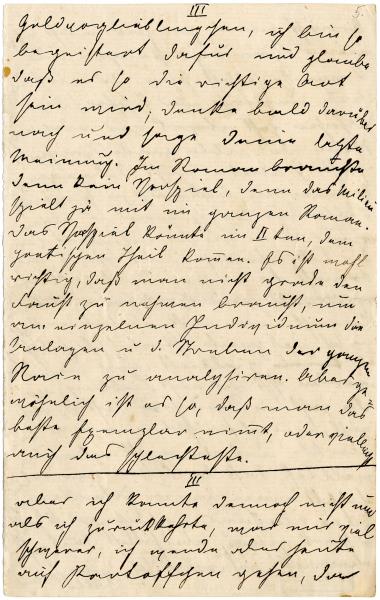 III
5.
ich bin so
begeistert dafür und glaube
daß es so die richtige Art
sein wird, denke bald darüber
nach und sage Deine letzte
Meinung. Im Roman brauchte
denn kein Vorspiel, denn das Milieu
spielt ja mit im ganzen Roman.
Das Vorspiel könnte im II ten, dem
poetischen Theil kommen. Es ist wohl
richtig, daß man nicht grade den
Faust zu nehmen braucht, um
am einzelnen Individuum die
Anlagen u d. Streben der ganzen
Race zu analysiren. Aber ge=
wöhnlich ist es so, daß man das
beste Exemplar nimt, oder vielleicht
auch das schlechteste.
III
aber ich konnte dennoch nicht und
als ich zurückkehrte, war mir viel
schwerer, ich werde aber heute
auf gehen, da